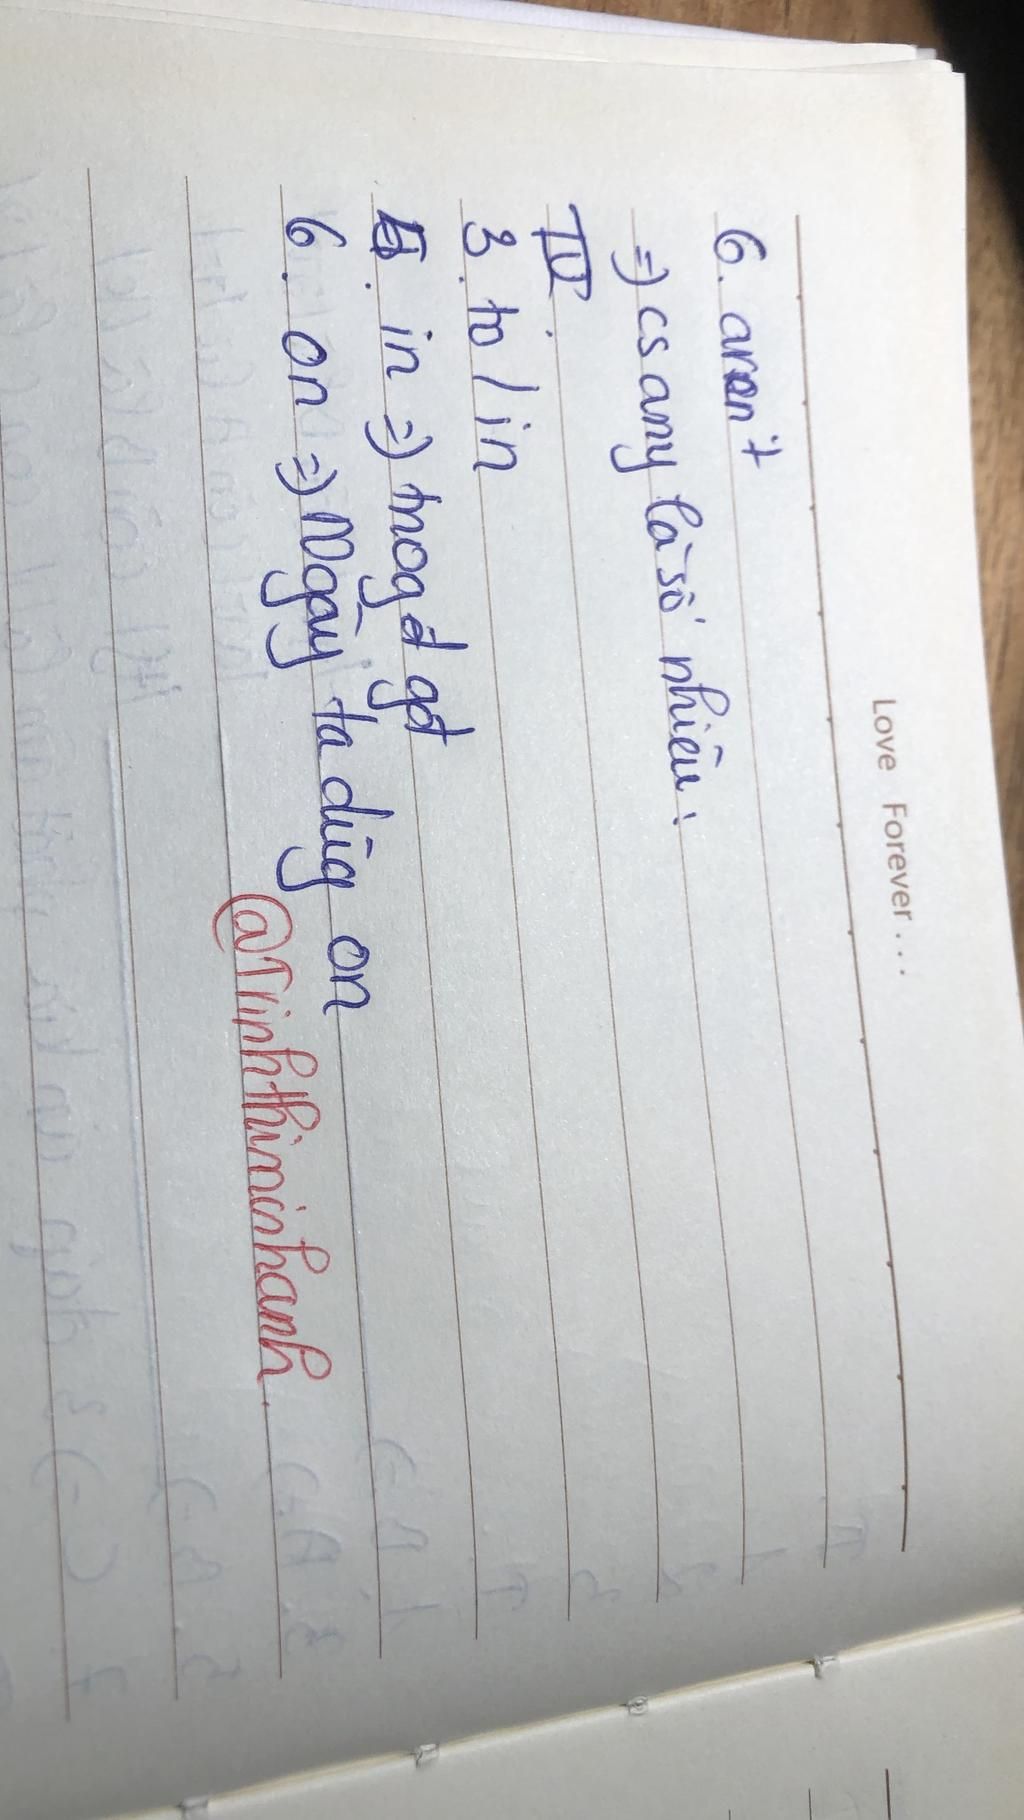 Love Forever...
6. aren't
=) cs any là số nhiều.
IV.
3. to / in
5. in =) trog d gđ
6. on =) Ngày ta dùg on
@Trinhthiminhanh.